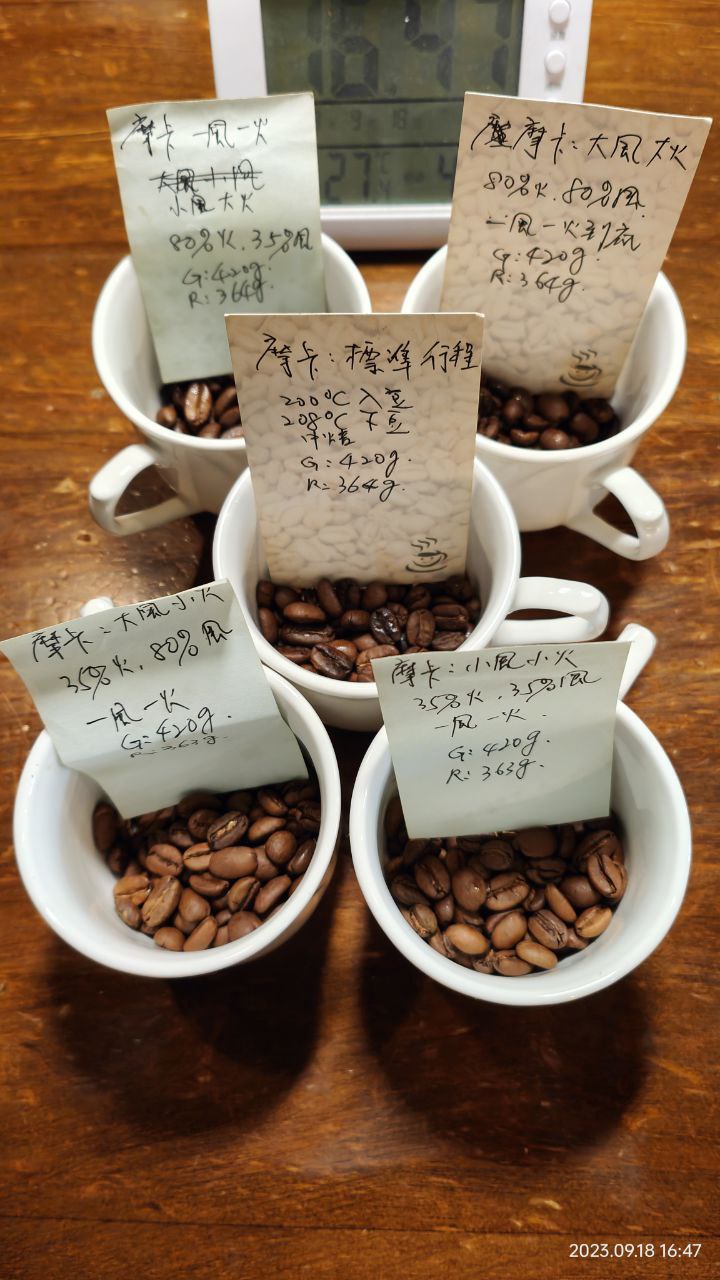 16:47
9 18
27
摩卡 一風一火
大風小風
小風大火
80%火、35%風
G:420g.
R:364g.
摩卡:大風大火
80%火、80%風
一風一火到底
G:420g.
R:364g.
摩卡:標準行程
200°C 入豆
208°C 下豆
中焙
G:420g.
R:364g.
摩卡:大風小火
35%火、80%風
一風一火
G:420g.
R:363g.
摩卡:小風小火
35%火、35%風
一風一火.
G:420g.
R:363g.
2023.09.18 16:47